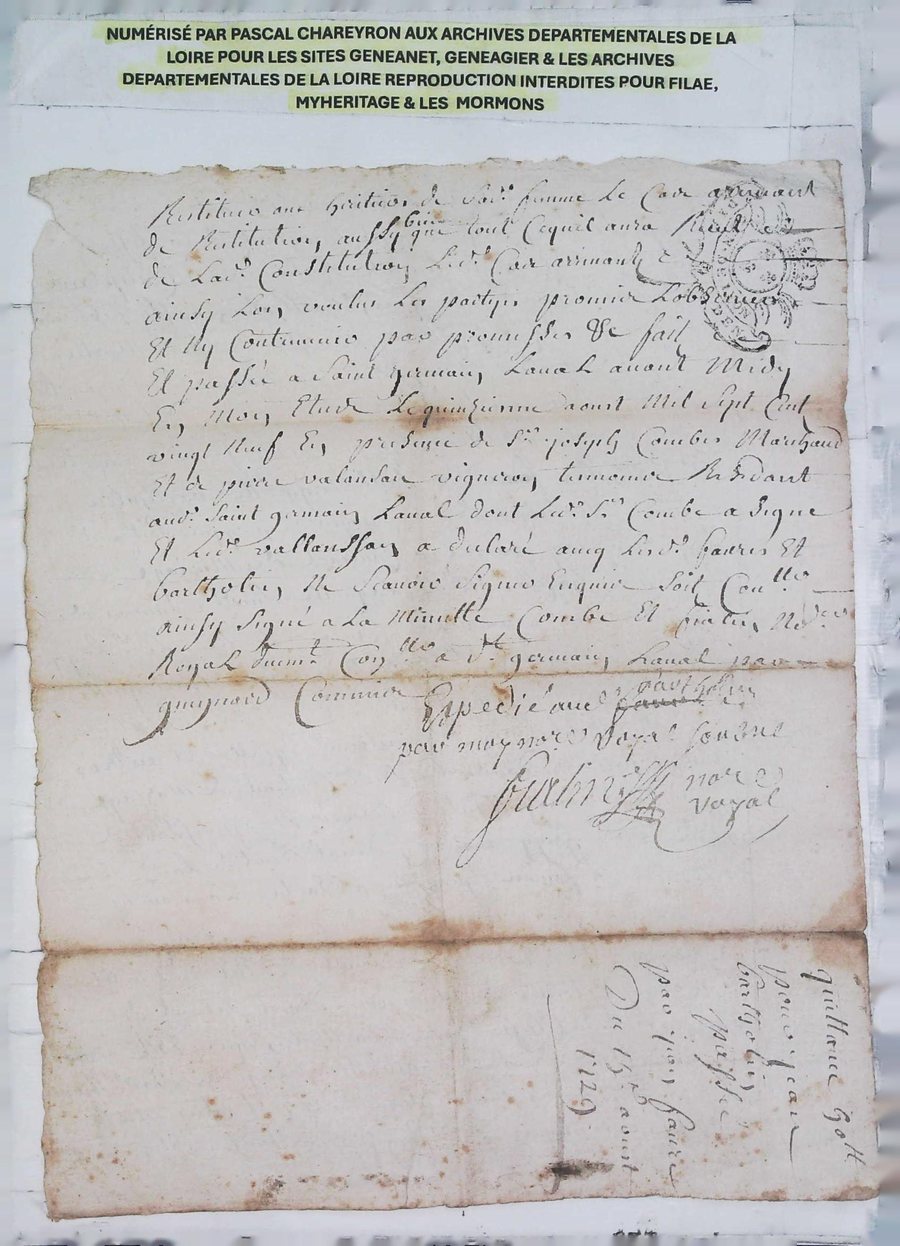 NUMÉRISÉ PAR PASCAL CHAREYRON AUX ARCHIVES DEPARTEMENTALES DE LA
LOIRE POUR LES SITES GENEANET, GENEAGIER & LES ARCHIVES
DEPARTEMENTALES DE LA LOIRE REPRODUCTION INTERDITES POUR FILAE,
MYHERITAGE & LES MORMONS
Restituer aux heritiers de femme Le Cas arrivant
de Restitution, aussy bien que tout Cequil aura Receu
de Lad. Constitution, Led. Cas arrivant
ainsy Lon voulus Les partyes promis Lobserver
Et ny Contrevenir par promesses &c fait
Et passée a Saint germain Laval avant Midy
En Mon Etude Le quinzieme aoust Mil Sept Cent
vingt Neuf En presence de Sr. joseph Combes Marchand
Et de pierre valansan vigneron temoins Residant
aud. Saint germain Laval dont Led. Sr. Combe a Signé
Et Led. vallansson a declaré avec Lesd. faures Et
bartholin Ne Scavoir Signer Enquis Soit Conllé
ainsy Signé a La Minutte Combe Et No.re
Royal a St. germain Laval par
guynard Commis
Expedié aud. bartholin
par moy no.re Royal Sousné
nore
royal
quittance
pour jean
bartholin
passée
par jean faure
Du 15e aoust
1729